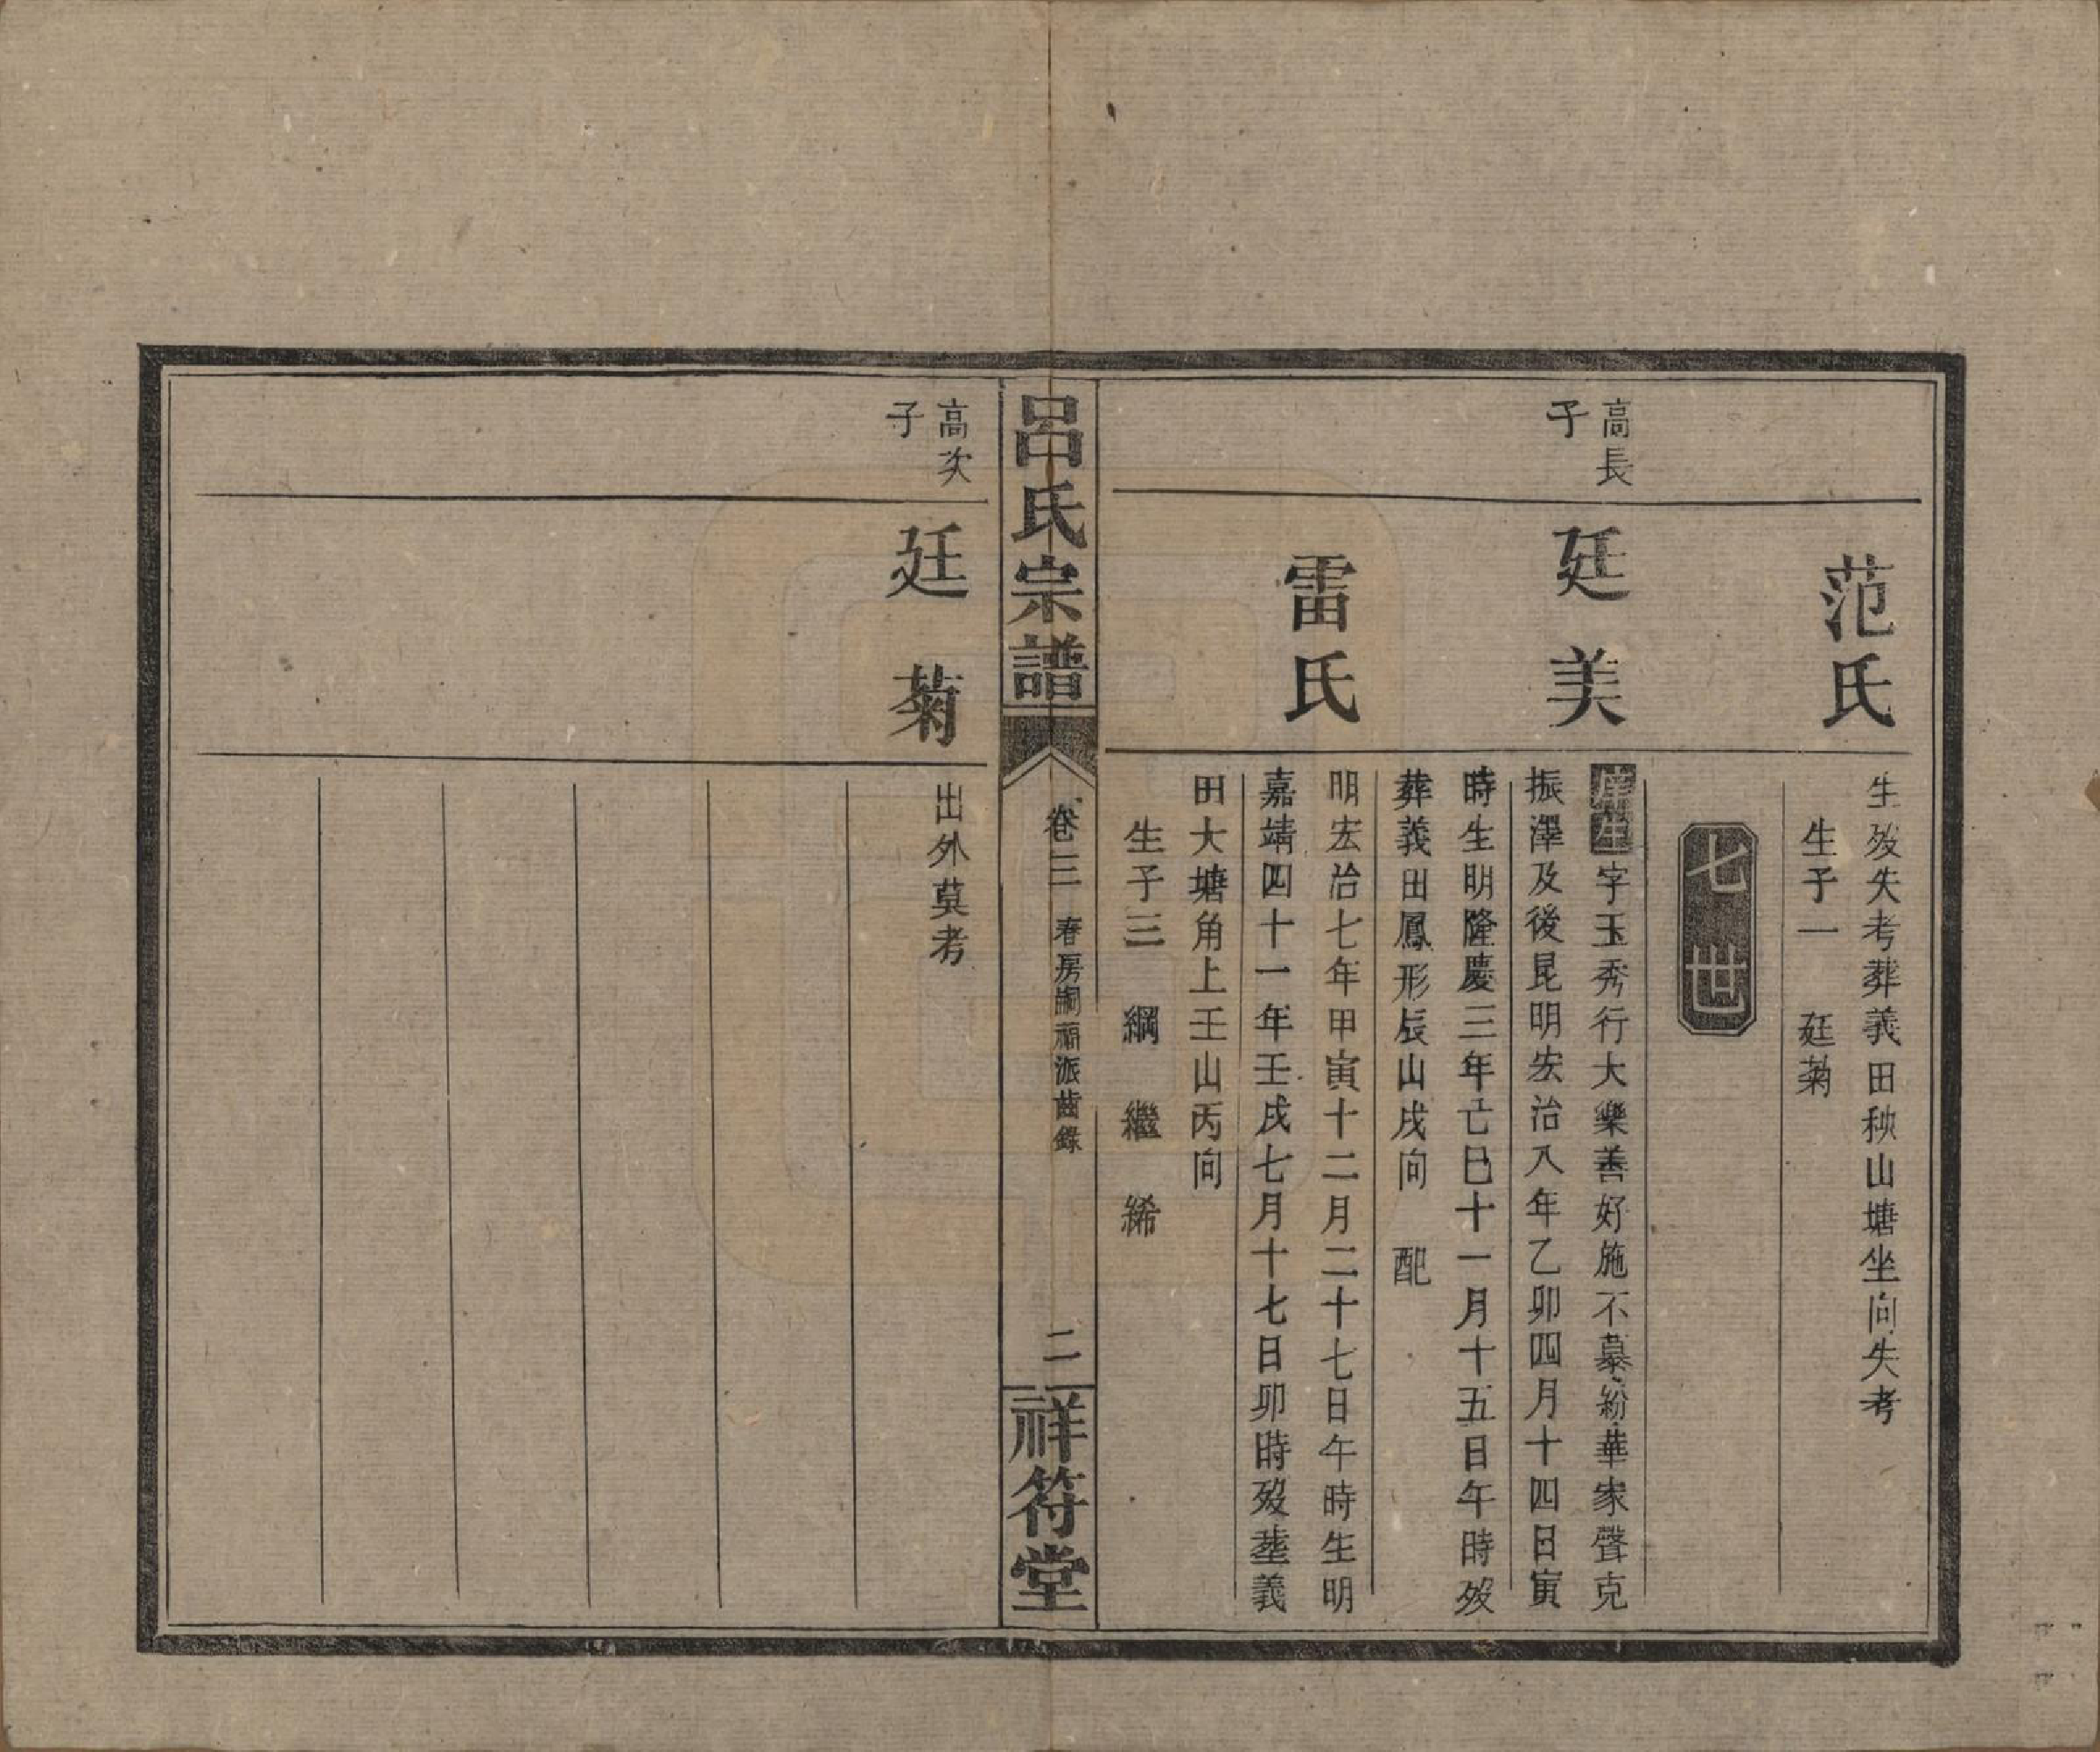 范氏
生歿失考葬義田秧山塘坐向失考
生子一 廷菊
七世
高長
子
廷美
庠生字玉秀行大樂善好施不慕紛華家聲克
振澤及後昆明宏治八年乙卯四月十四日寅
時生明隆慶三年亡巳十一月十五日午時歿
葬義田鳳形辰山戌向 配
雷氏
明宏治七年甲寅十二月二十七日午時生明
嘉靖四十一年壬戌七月十七日卯時歿塟義
田大塘角上壬山丙向
生子三 綱 繼 絺
呂氏宗譜
卷三 春房嗣福派齒錄
二
祥符堂
高次
子
廷菊
出外莫考